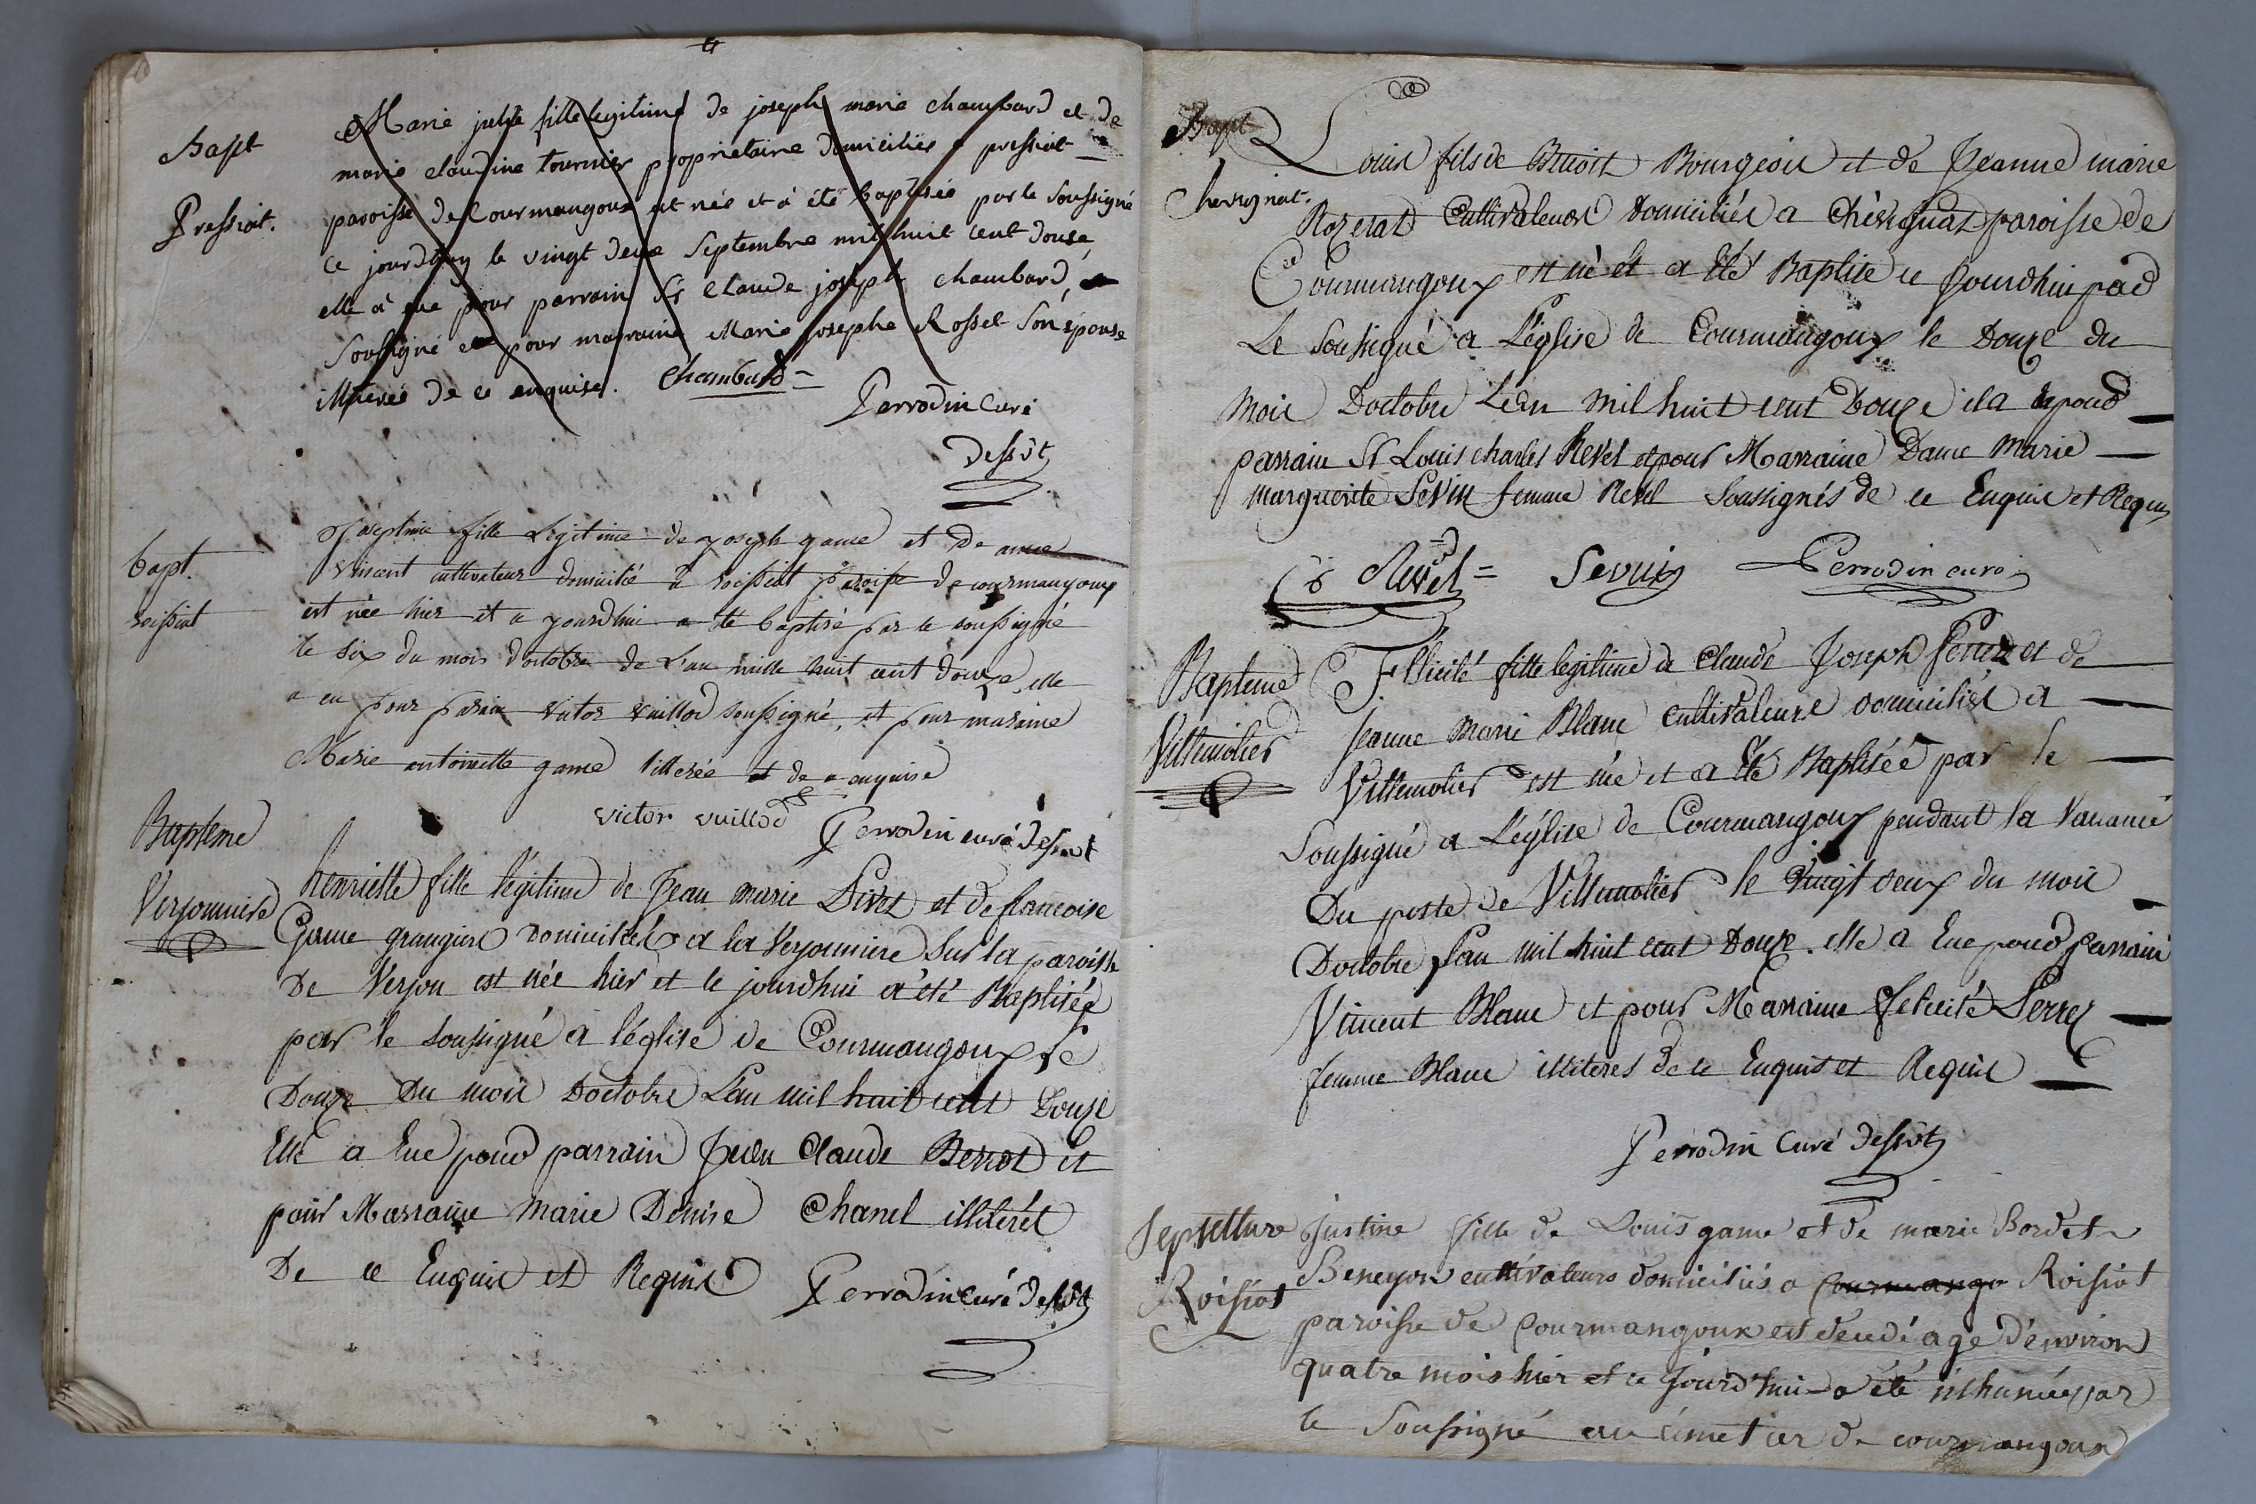 Bapt
Pressiat.
Marie julie fille legitime de joseph marie chambard et de
marie claudine tournier proprietaire domiciliés a pressiat
paroisse de Courmangoux est née et à été baptisée par le soussigné
ce jourdhuy le vingt deux Septembre mil huit cent douse
elle à eue pour parrain Sr Claude joseph chambard,
soussigné et pour marraine Marie josephe Rosset son épouse
illiterés de ce enquise. Chambard
Perrodin Curé
dessvt
bapt.
roissiat
Josephine fille Légitime de joseph game et De anne
vincent cultivateur domicilié à roissiat paroisse de courmangoux
est née hier et a yourdhui a été baptisé par le soussigné
le six du mois doctobre de L'an mille huit cent douze, elle
a eu pour parain victor vuillod soussigné, et pour maraine
Marie antoinette game illiterée et de ce enquise
victor vuillod Perrodin curé dessvt
Bapteme
Verjonniere
henriette fille légitime de Jean marie Pivet et de francoise
Game grangiers Domiciliés a la Verjonniere Sur la paroisse
De Verjon est née hier et ce jourdhui a été Baptisée
par le soussigné a l'église de Courmangoux le
Douze Du mois Doctobre L'an mil huit cent Douze
Elle a Eue pour parrain Jean Claude Berrot et
pour Marraine Marie Denise Chanel illiterés
De ce Enquis et Requis Perrodin curé dessvt
Bapt
Chevignat.
Louis fils de Benoit Bourgeois et de Jeanne marie
Rozerat Cultivateurs Domiciliés a Chevignat paroisse de
Courmangoux est né et a été Baptisé ce Jourdhui par
Le Soussigné a L'église de Courmangoux le Douze du
mois Doctobre L'an mil huit cent Douze il a Eu pour
parrain Sr Louis charles Revel et pour Marraine Dame Marie
marguerite Sevin femme Revel Soussignés de ce Enquis et Requis
Revel = Sevin Perrodin curé
Bapteme
Villemotier
Félicité fille légitime de Claude Joseph Perret et de
Jeanne Marie Blanc Cultivateurs domiciliés a
Villemotier est née et a été Baptisée par le
Soussigné a L'église de Courmangoux pendant la Vacance
Du poste de Villemotier le Vingt deux du mois
Doctobre L'an mil huit cent Douze. elle a Eue pour parrain
Vincent Blanc et pour Marraine félicité Perret
femme Blanc illiteres de ce Enquis et Requis
Perrodin Curé dessvt
Sepulture
Roissiat
Justine fille de Louis game et de marie Bordet
Beneyon cultivateurs domiciliés a Courmango Roissiat
paroisse de Courmangoux est decedé age d'environ
quatre mois hier et ce Jourd'hui a été inhumée par
le Soussigné au cimetier de courmangoux